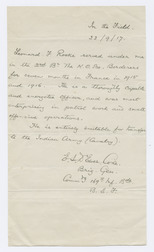 In the Field.
22/9/17.
Leonard F. Rooke served under me
in the 2nd Bn The K.O. Sco. Borderers
for seven months in France in 1915
and 1916. He is a thoroughly capable
and energetic officer, and was most
enterprising in patrol work and such
offensive operations.
He is entirely suitable for transfer
to the Indian Army (Cavalry).
Brig. Gen
Comdg
B.E.F.